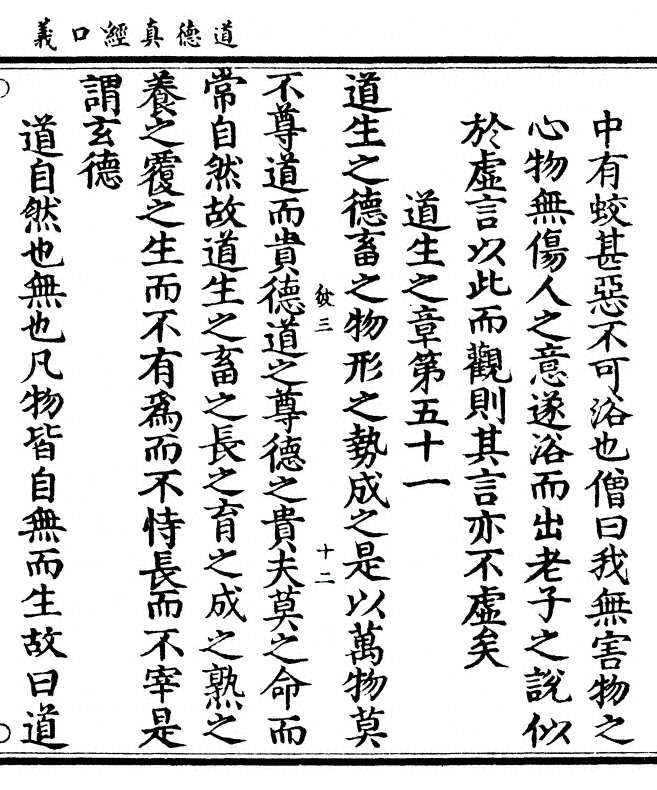 道德真經口義
中有蛟甚惡不可浴也僧曰我無害物之
心物無傷人之意遂浴而出老子之說似
於虛言以此而觀則其言亦不虛矣
道生之章第五十一
道生之德畜之物形之勢成之是以萬物莫
三
十二
不尊道而貴德道之尊德之貴夫莫之命而
常自然故道生之畜之長之育之成之熟之
養之覆之生而不有爲而不恃長而不宰是
謂玄德
道自然也無也凡物皆自無而生故曰道